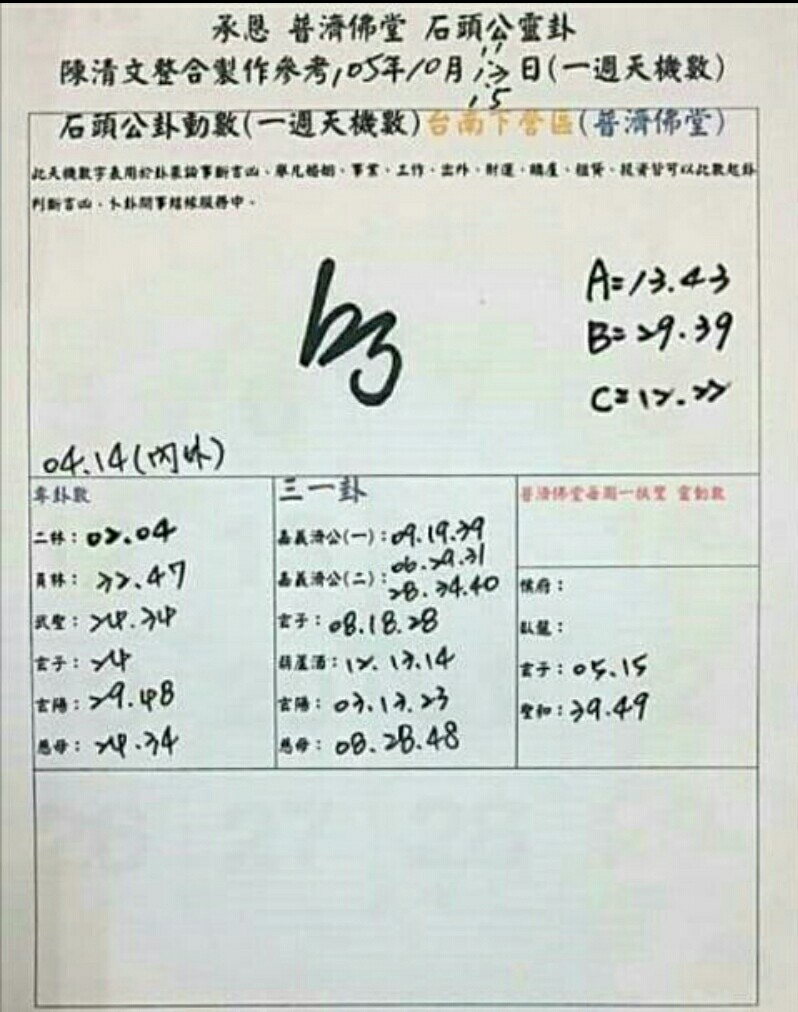 承恩 普濟佛堂 石頭公靈卦
11
陳清文整合製作參考105年10月13日(一週天機數)
15
石頭公卦動數(一週天機數)台南下營區(普濟佛堂)
此天機數字表用於卦象論事斷吉凶、舉凡婚姻、事業、工作、出外、財運、購產、租賃、投資皆可以此數起卦
判斷吉凶、卜卦問事結緣服務中。
A=13.43
B=29.39
C=12.22
04.14(內外)
專卦數
二林:02.04
員林:32.47
武聖:24.34
玄子:24
玄陽:29.48
慈母:24.34
三一卦
嘉義濟公(一):09.19.39
嘉義濟公(二):06.29.31
28.34.40
玄子:08.18.28
葫蘆酒:12.13.14
玄陽:03.13.23
慈母:08.28.48
普濟佛堂每期一扶聖 靈動數
候府:
臥龍:
玄子:05.15
聖和:39.49